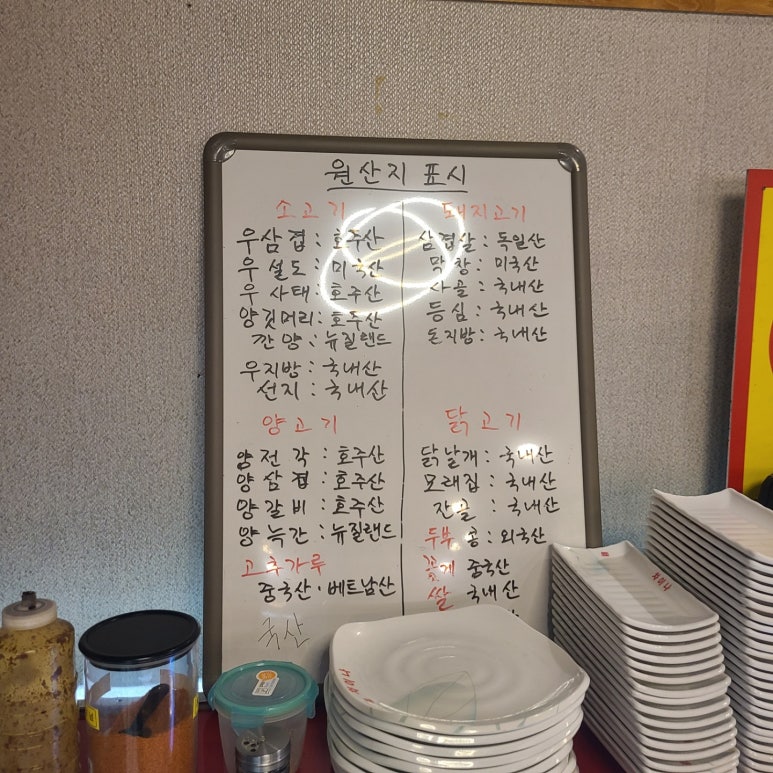 원산지 표시
소고기
우삼겹 : 호주산
우설도 : 미국산
우사태 : 호주산
양깃머리 : 호주산
깐양 : 뉴질랜드
우지방 : 국내산
선지 : 국내산
돼지고기
삼겹살 : 독일산
막창 : 미국산
사골 : 국내산
등심 : 국내산
돈지방 : 국내산
양고기
양전각 : 호주산
양삼겹 : 호주산
양갈비 : 호주산
양늑간 : 뉴질랜드
고추가루
중국산 · 베트남산
국산
닭고기
닭날개 : 국내산
모래집 : 국내산
잔골 : 국내산
두부 콩 : 외국산
꽃게 중국산
쌀 국내산